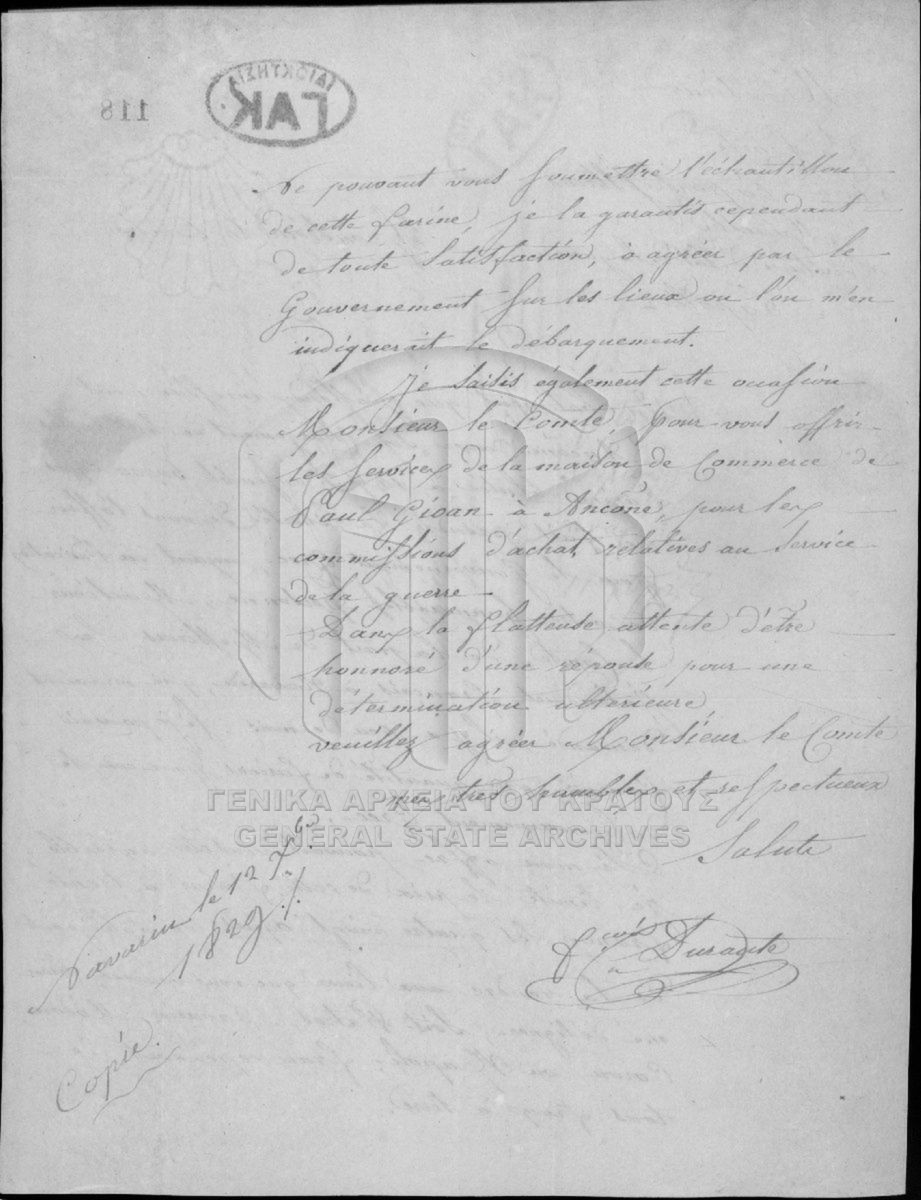 118
ΙΔΙΟΚΤΗΣΙΑ
ΓΑΚ
Ne pouvant vous soumettre l'échantillon
de cette farine, je la garantis cependant
de toute satisfaction, à agréer par le
Gouvernement sur les lieux ou l'on m'en
indiquerait le débarquement.
Je saisis également cette occasion
Monsieur le Comte pour vous offrir
les services de la maison de Commerce de
Paul Gioan à Ancône, pour les
commissions d'achat relatives au service
de la guerre -
Dans la flatteuse attente d'être
honnoré d'une réponse pour une
détermination ultérieure
veuillez agréer Monsieur le Comte
mes très humbles et respectueux
Saluts
Fçois Durante
Navarin le 12 7.bre
1829./.
Copie.
ΓΕΝΙΚΑ ΑΡΧΕΙΑ ΤΟΥ ΚΡΑΤΟΥΣ
GENERAL STATE ARCHIVES